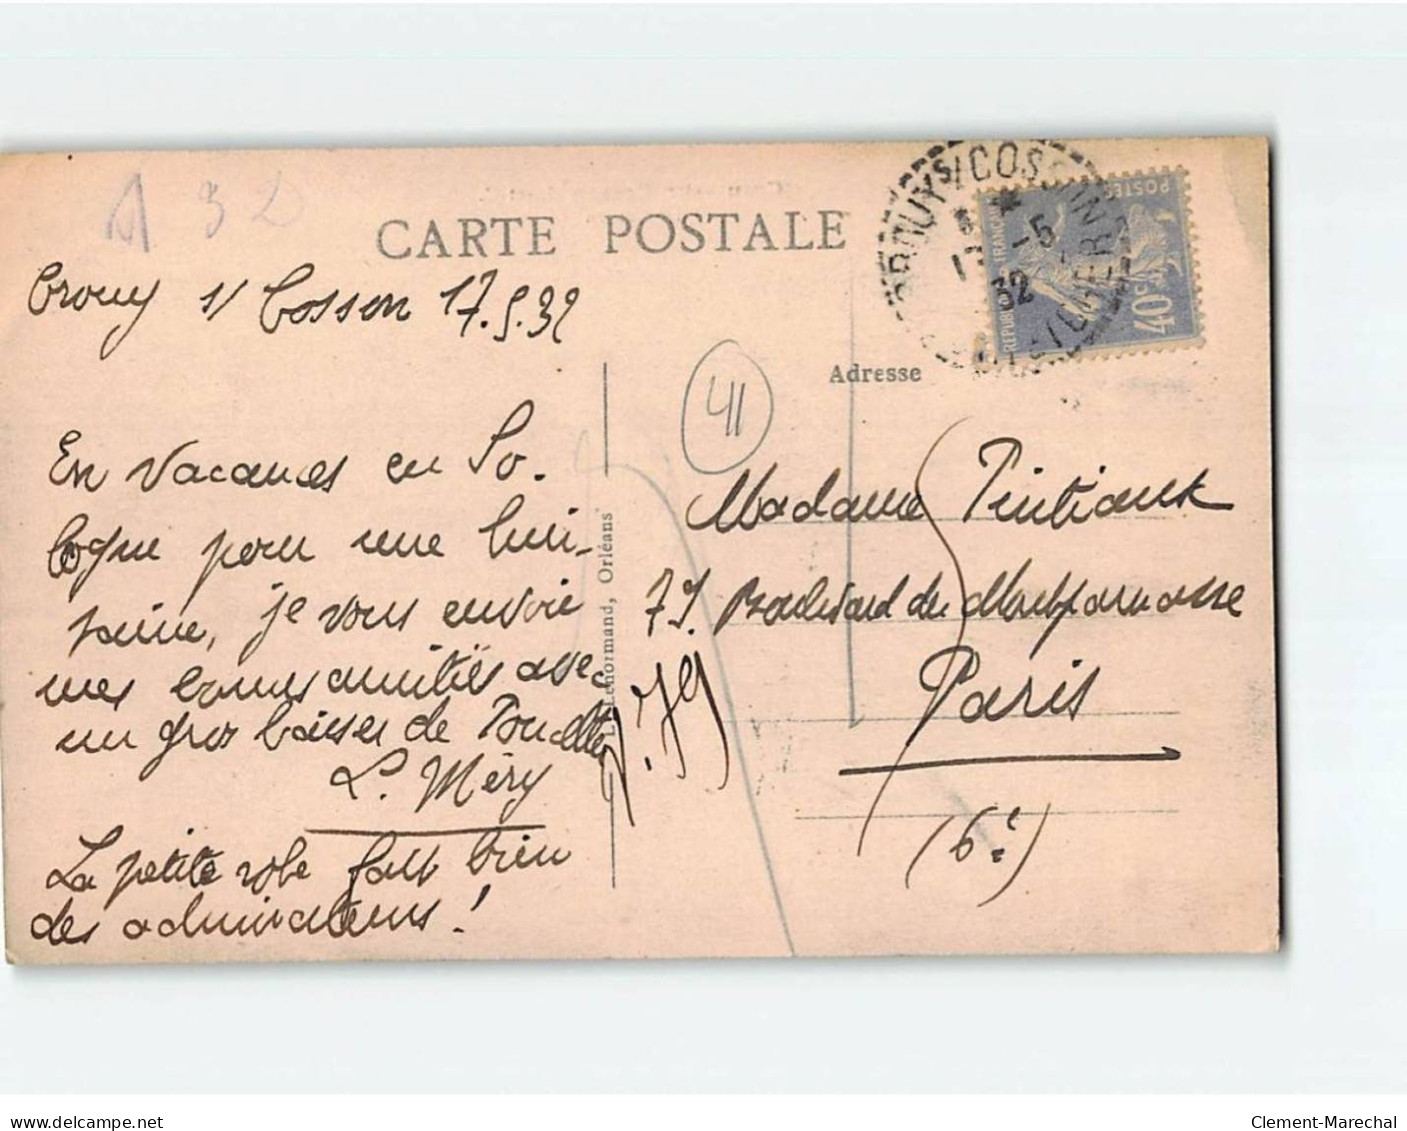 A 32
CARTE POSTALE
Crouy s/ Cosson 17.5.32
CROUY S/ COSSON
17 -5
32
LOIR-ET-CHER
POSTES
REPUBLIQUE FRANÇAISE
40c
41
Adresse
En vacances en So-
logne pour une hui-
taine, je vous envoie
mes bonnes amitiés avec
un gros baiser de
L. Méry
La petite robe fait bien
des admirateurs !
L. Lenormand, Orléans
Madame
7 Boulevard du Montparnasse
Paris
(6e)
79
Clement-Marechal